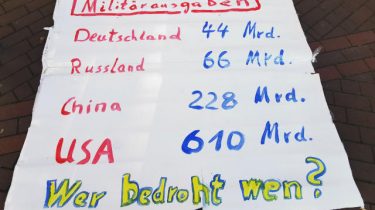 Militärausgaben
Deutschland 44 Mrd.
Russland 66 Mrd.
China 228 Mrd.
USA 610 Mrd.
Wer bedroht wen?